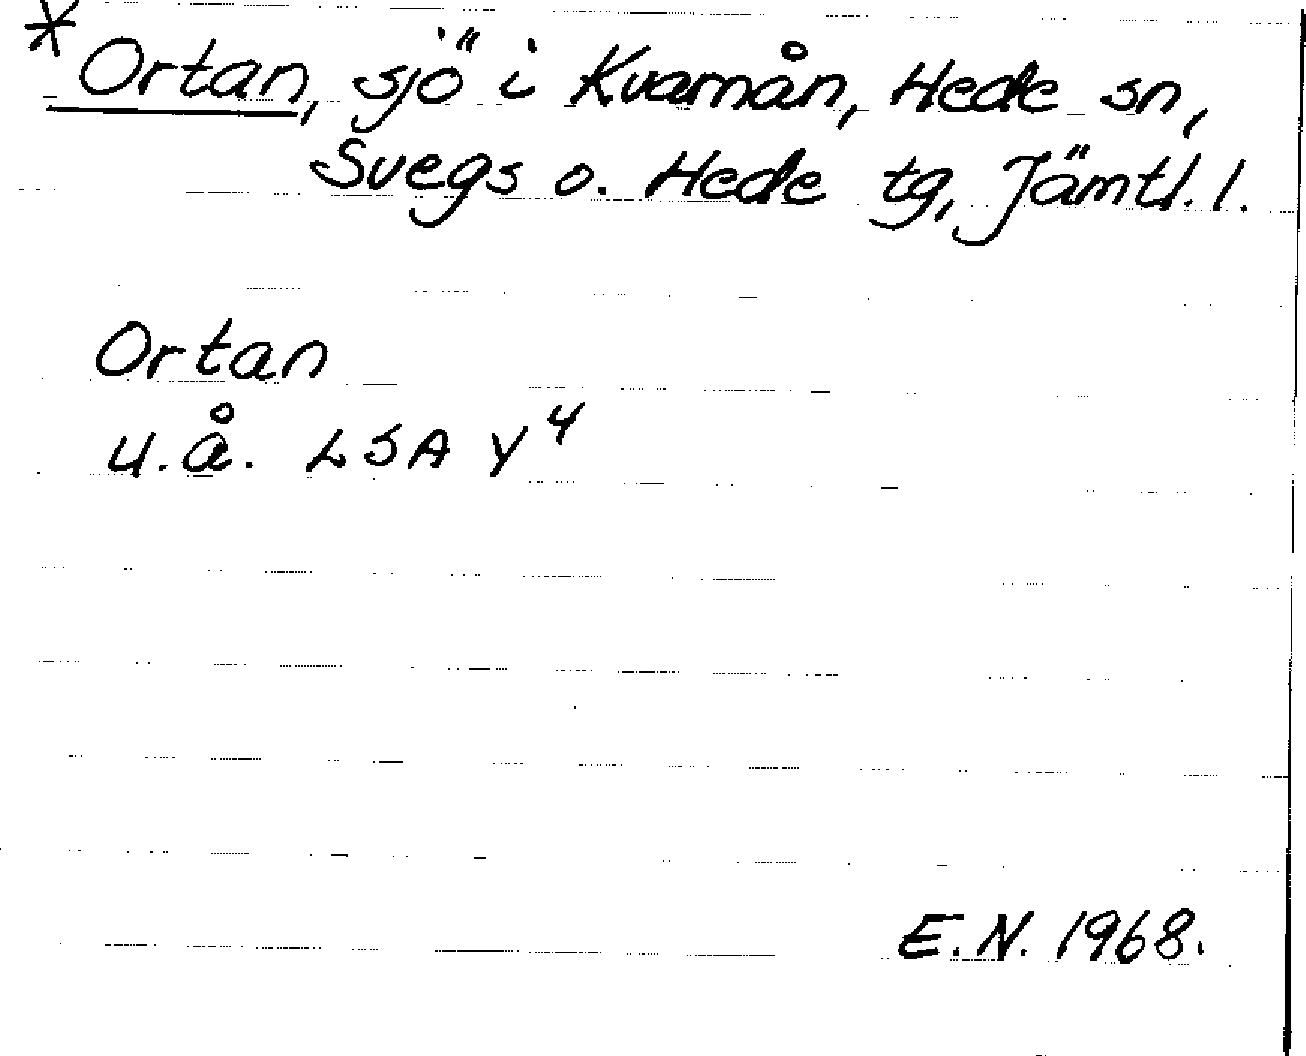 * Ortan, sjö i Kvarnån, Hede sn,
Svegs o. Hede tg, Jämtl. l.
Ortan
u.å. LSA Y⁴
E.N. 1968.